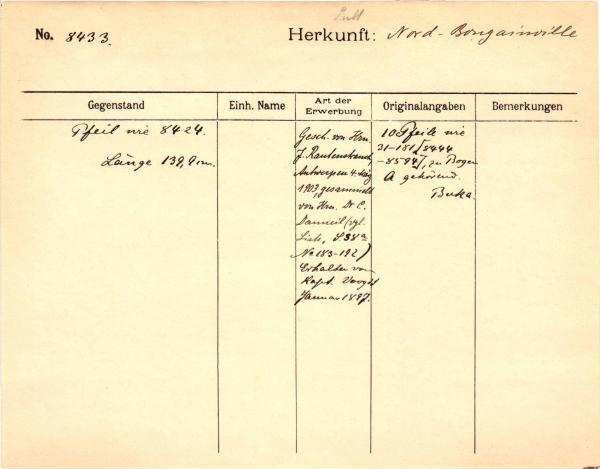 No. 8433. Herkunft: Nord-Bougainville
Gegenstand Einh. Name Art der Erwerbung Originalangaben Bemerkungen
Pfeil wie 8424.
Länge 139,9 cm.
Gesch. von Hrn.
J. Rautenstrauch,
Antwerpen 4. März
1903, gesammelt
von Hrn. Dr C.
Danneil (vgl.
Liste, S 38a
No 183-192)
Erhalten von
Kapt. Voogdt
Januar 1897.
10 Pfeile wie
21-151 [8444
-8594], zu Bogen
A gehörend.
Buka.